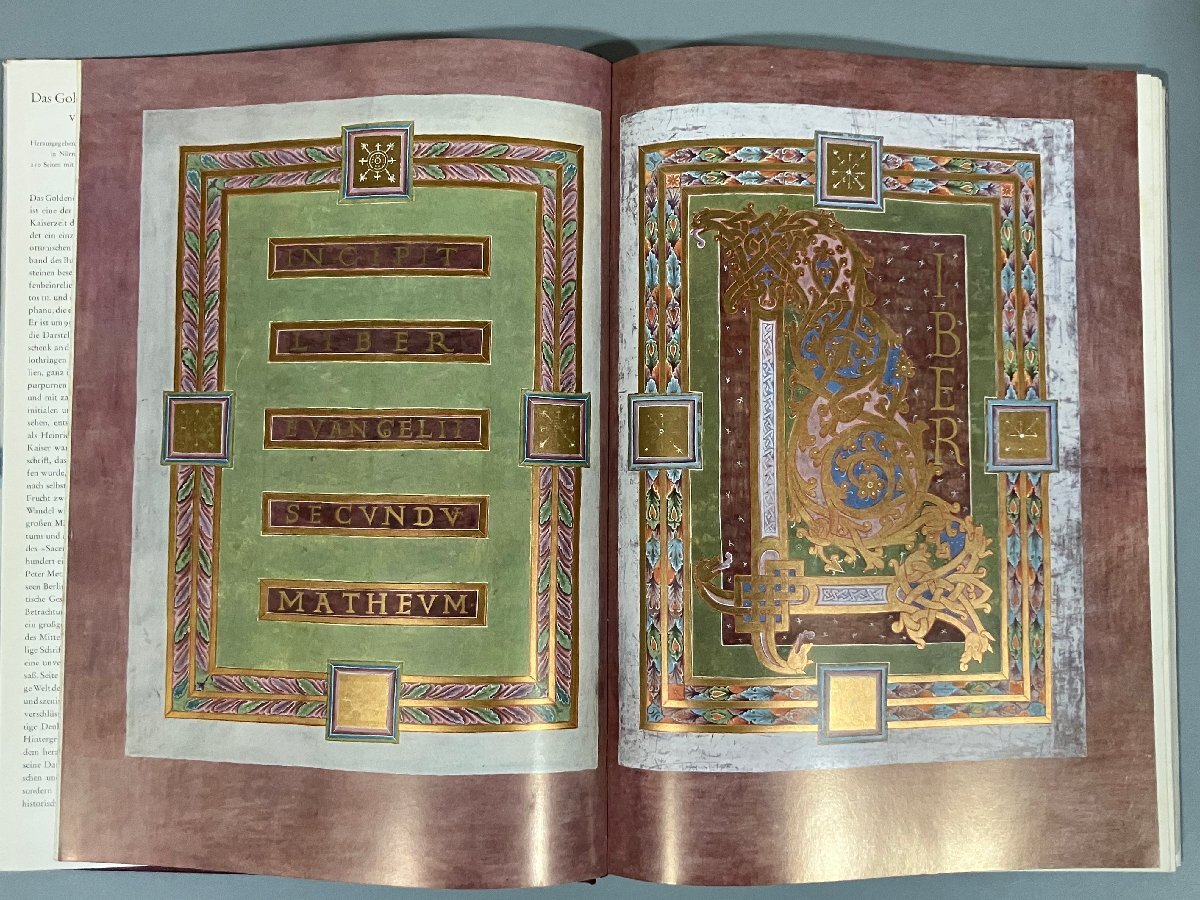 Das Gol
v
Herausgegeben
in Nürn
210 Seiten mit
Das Golden
ist eine der
Kaiserzeit d
det ein einz
ottonischen
band des Bu
steinen bese
fenbeinrelie
tos III. und
phanu, die e
Er ist um 99
die Darstel
schenk and
lothringen
lien, ganz i
purpurnen
und mit za
initialen u
sehen, ents
als Heinric
Kaiser war
schrift, das
fen wurde,
nach selbst
Frucht zw
Wandel w
großen Mi
tums und
des »Sacer
hundert ei
Peter Met
seen Berlin
tische Ges
Betrachtu
ein großg
des Mitte
lige Schrif
eine unve
saß. Seite
ge Welt de
und szeni
verschlüs
tige Denk
Hintergr
dem herz
seine Dar
schen und
sondern
historisch
INCIPIT
LIBER
EVANGELII
SECVNDV
MATHEVM
LIBER